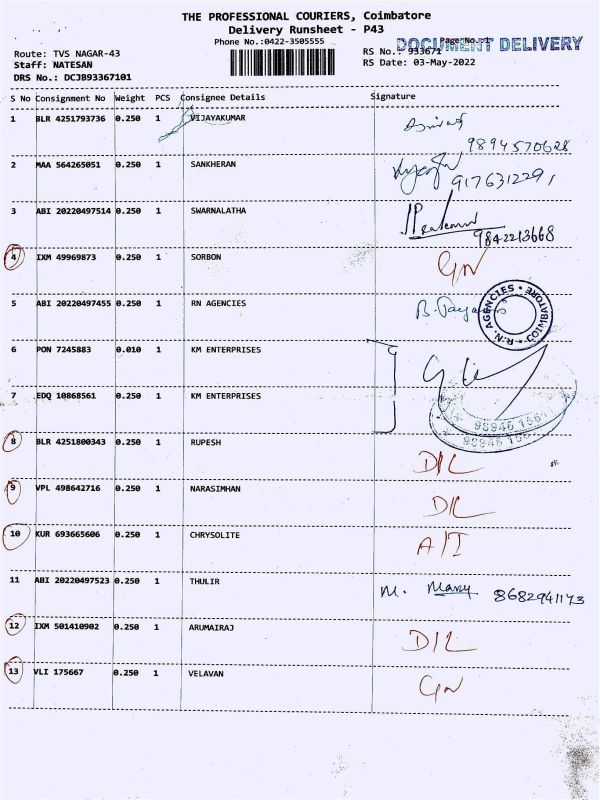 THE PROFESSIONAL COURIERS, Coimbatore
Delivery Runsheet - P43
Phone No.:0422-3505555
DOCUMENT DELIVERY
Page No.:1
Route: TVS NAGAR-43
RS No.: 933671
Staff: NATESAN
RS Date: 03-May-2022
DRS No.: DCJB93367101
S No Consignment No Weight PCS Consignee Details Signature
1 BLR 4251793736 0.250 1 VIJAYAKUMAR
9894570628
2 MAA 564265051 0.250 1 SANKHERAN
9176312291
3 ABI 20220497514 0.250 1 SWARNALATHA
9842213668
4 IXM 49969873 0.250 1 SORBON
5 ABI 20220497455 0.250 1 RN AGENCIES
R.N. AGENCIES * COIMBATORE *
6 PON 7245883 0.010 1 KM ENTERPRISES
7 EDQ 10868561 0.250 1 KM ENTERPRISES
8 BLR 4251800343 0.250 1 RUPESH
D/L
9 VPL 498642716 0.250 1 NARASIMHAN
D/L
10 KUR 693665606 0.250 1 CHRYSOLITE
A/I
11 ABI 20220497523 0.250 1 THULIR
M. Mary 8682941173
12 IXM 501410902 0.250 1 ARUMAIRAJ
D/L
13 VLI 175667 0.250 1 VELAVAN